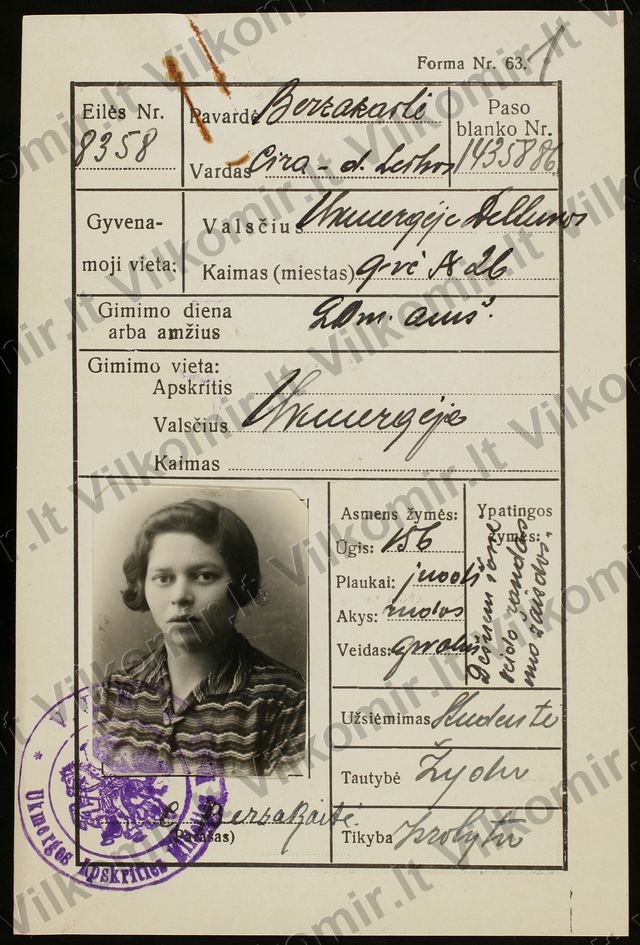 Forma Nr. 63.
1
Eilės Nr.
8358
Pavardė Berzakaitė
Vardas Cira - d. Leibos
Paso
blanko Nr.
1435886
Gyvena-
moji vieta:
Valsčius Ukmergėje
Kaimas (miestas) g-vė № 26
Gimimo diena
arba amžius
20 m. amž.
Gimimo vieta:
Apskritis
Valsčius Ukmergėje
Kaimas
Asmens žymės:
Ūgis: 156
Plaukai: juodi
Akys: rudos
Veidas:
Ypatingos
žymės:
Užsiėmimas Studentė
Tautybė Žydų
Tikyba
C. Berzakaitė.
(Parašas)
Ukmergės Apskrities
Vilkomir.lt